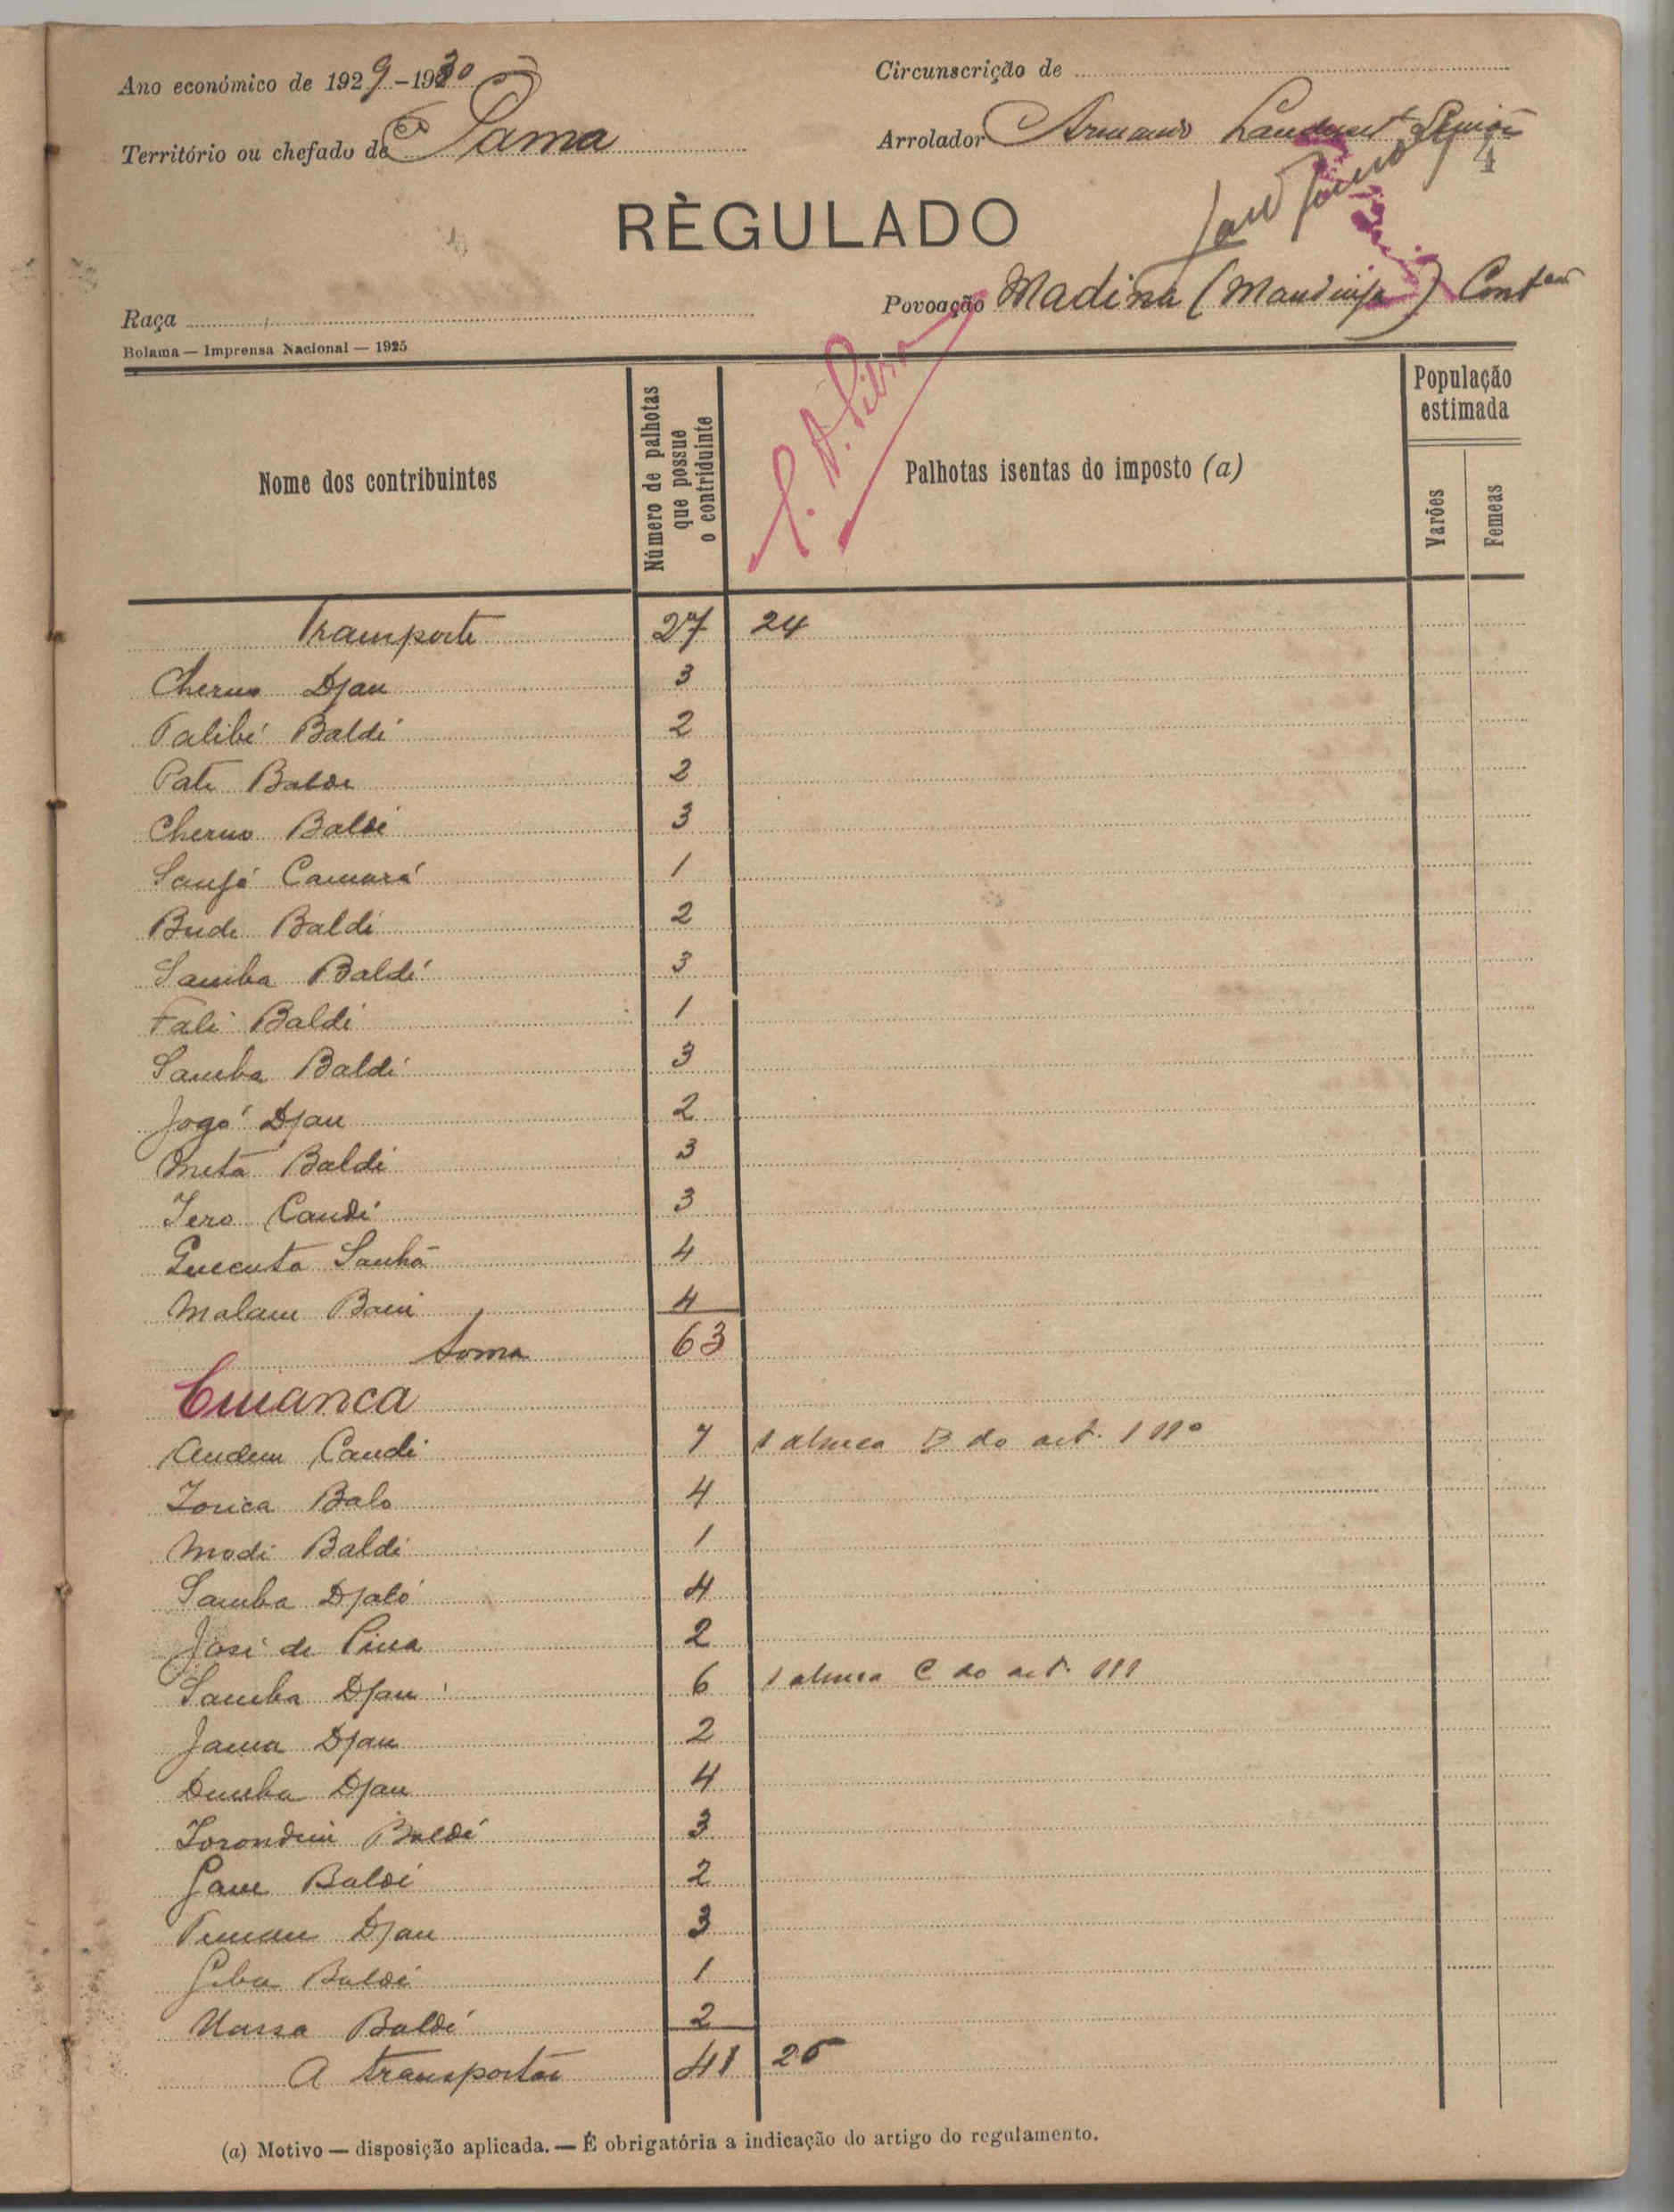 Ano económico de 1929-1930
Circunscrição de
Território ou chefado de Pama
Arrolador Armando
4
RÈGULADO
Raça
Povoação Madina (Mandinga) Contem
Bolama — Imprensa Nacional — 1925
Nome dos contribuintes
Número de palhotas que possue o contriduinte
Palhotas isentas do imposto (a)
População estimada
Varões
Femeas
Transporte 27 24
Cherno Djau 3
Talibé Baldé 2
Pate Balde 2
Cherno Baldé 3
Camará 1
Bude Baldé 2
Samba Baldé 3
Fali Baldé 1
Samba Baldé 3
Jogó Djau 2
Baldé 3
Iero Candé 3
Quecuta Sanhá 4
Malam 4
Soma 63
Cuianca
Candé 7 1 alinea B do art. 111º
Balo 4
Modi Baldé 1
Samba Djaló 4
José de Pina 2
Samba Djau 6 1 alinea C do art. 111
Djau 2
Demba Djau 4
Baldé 3
Baldé 2
Djau 3
Baldé 1
Baldé 2
A transportar 41 26
(a) Motivo — disposição aplicada. — É obrigatória a indicação do artigo do regulamento.